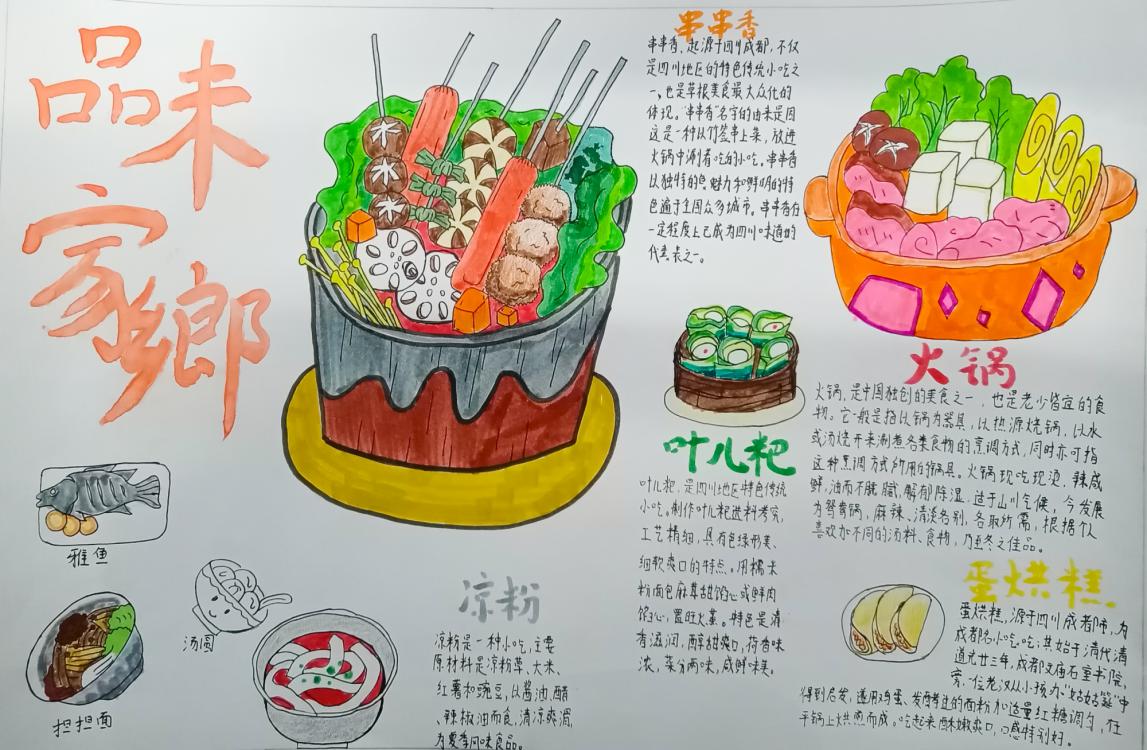 品味
家鄉
串串香
串串香、起源于四川成都,不仅
是四川地区的特色传统小吃之
一、也是草根美食最大众化的
体现。“串串香”名字的由来是因
这是一种以竹签串上菜,放进
火锅中涮着吃的小吃。串串香
以独特的魅力和鲜明的特
色遍于全国众多城市。串串香在
一定程度上已成为四川味道的
代表之一。
火锅
火锅,是中国独创的美食之一,也是老少皆宜的食
物。它一般是指以锅为器具,以热源烧锅,以水
或汤烧开来涮煮各类食物的烹调方式,同时亦可指
这种烹调方式所用的锅具。火锅现吃现烫,辣咸
鲜,油而不腻,解郁除湿,适于山川气候,今发展
为鸳鸯锅,麻辣、清淡各别,各取所需,根据个人
喜欢加不同的汤料、食物,乃至冬之佳品。
叶儿粑
叶儿粑,是四川地区特色传统
小吃。制作叶儿粑选料考究,
工艺精细,具有色绿形美、
细软爽口的特点。用糯米
粉面包麻茸甜馅心或鲜肉
馅心,置旺火蒸。特色是清
香滋润,醇甜爽口,荷香味
浓,菜分两味,咸鲜味美。
蛋烘糕
蛋烘糕,源于四川成都市,为
成都名小吃。其始于清代清
道光廿三年,成都文庙石室书院,
旁一位老汉从小孩办“姑姑筵”中
得到启发,遂用鸡蛋、发酵过的面粉加适量红糖调匀,在
平锅上烘煎而成。吃起来酥嫩爽口,口感特别好。
凉粉
凉粉是一种小吃,主要
原材料是凉粉草、大米、
红薯和豌豆,以酱油、醋
、辣椒油而食,清凉爽滑,
为夏季风味食品。
雅鱼
汤圆
担担面